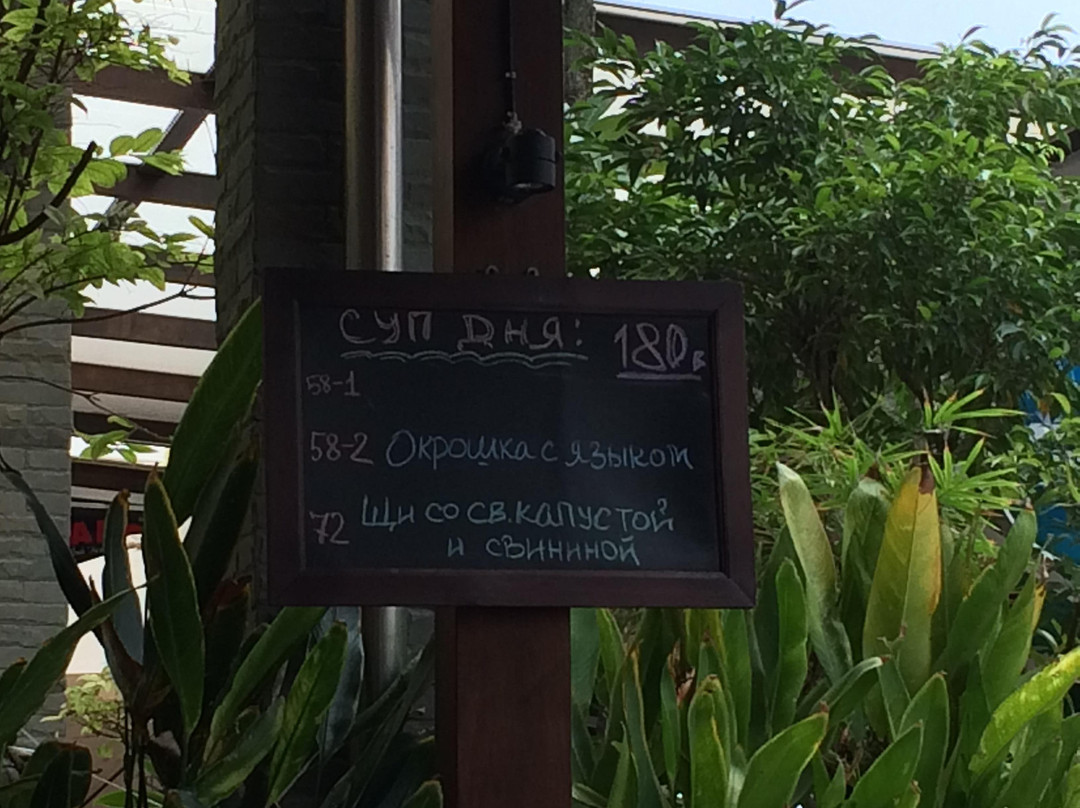 СУП ДНЯ: 180 в
58-1
58-2 Окрошка с языком
72 Щи со св. капустой
и свининой